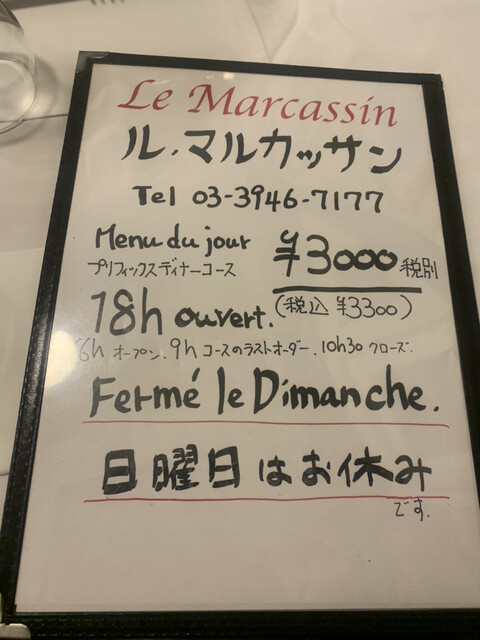 Le Marcassin
ル・マルカッサン
Tel 03-3946-7177
Menu du jour ¥3000 税別
プリフィックスディナーコース
18h ouvert. (税込 ¥3300)
6h オープン. 9h コースのラストオーダー. 10h30 クローズ.
Fermé le Dimanche.
日曜日はお休み
です.